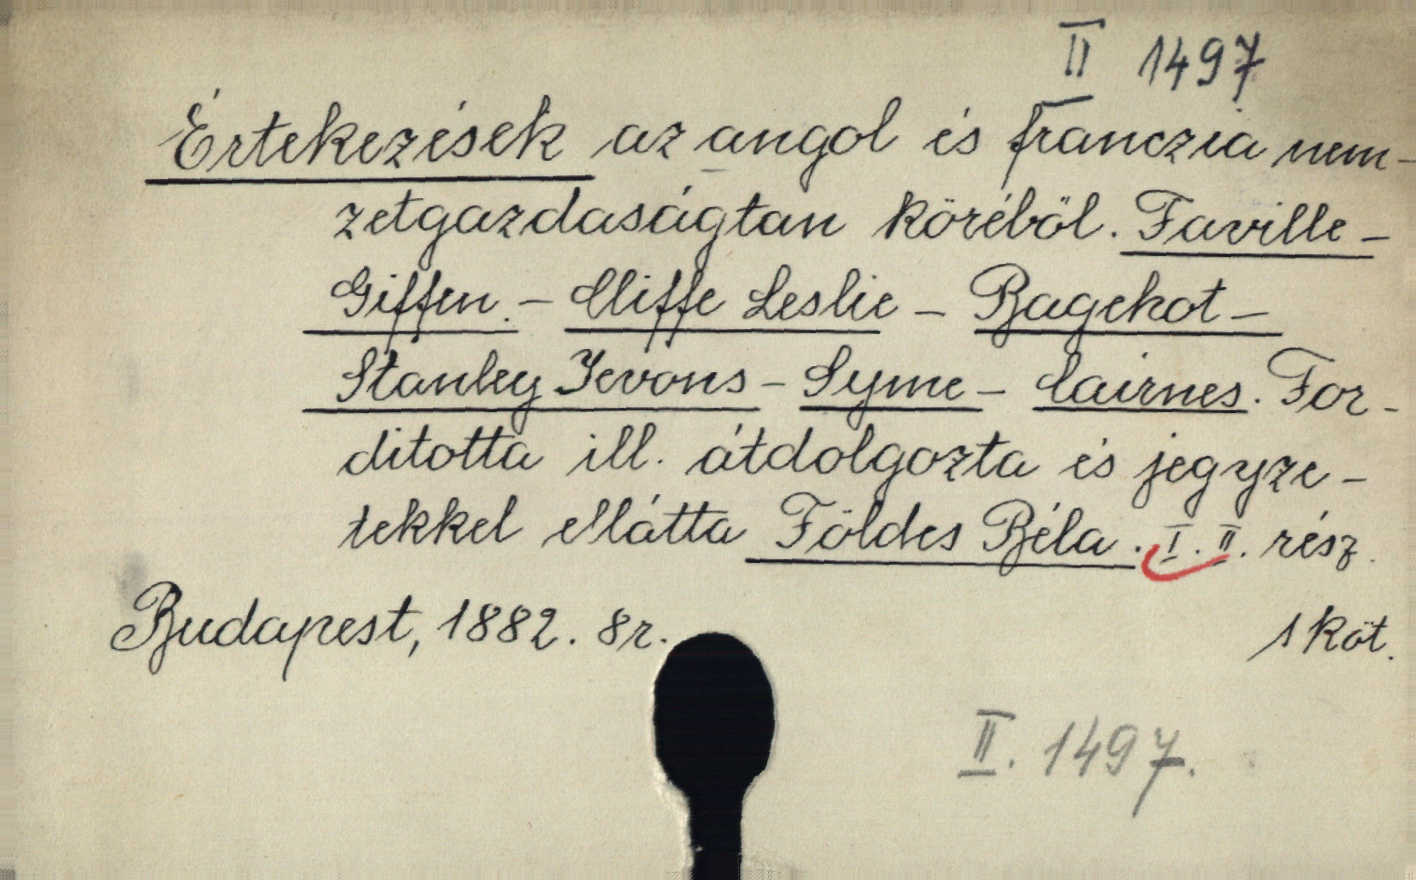 II 1497
Értekezések az angol és franczia nem-
zetgazdaságtan köréből. Faville -
Giffen. - Cliffe Leslie - Bagehot -
Stanley Jevons - Syme - Cairnes. For-
ditotta ill. átdolgozta és jegyze-
tekkel ellátta Földes Béla. I. II. rész.
Budapest, 1882. 8r. 1 köt.
II. 1497.